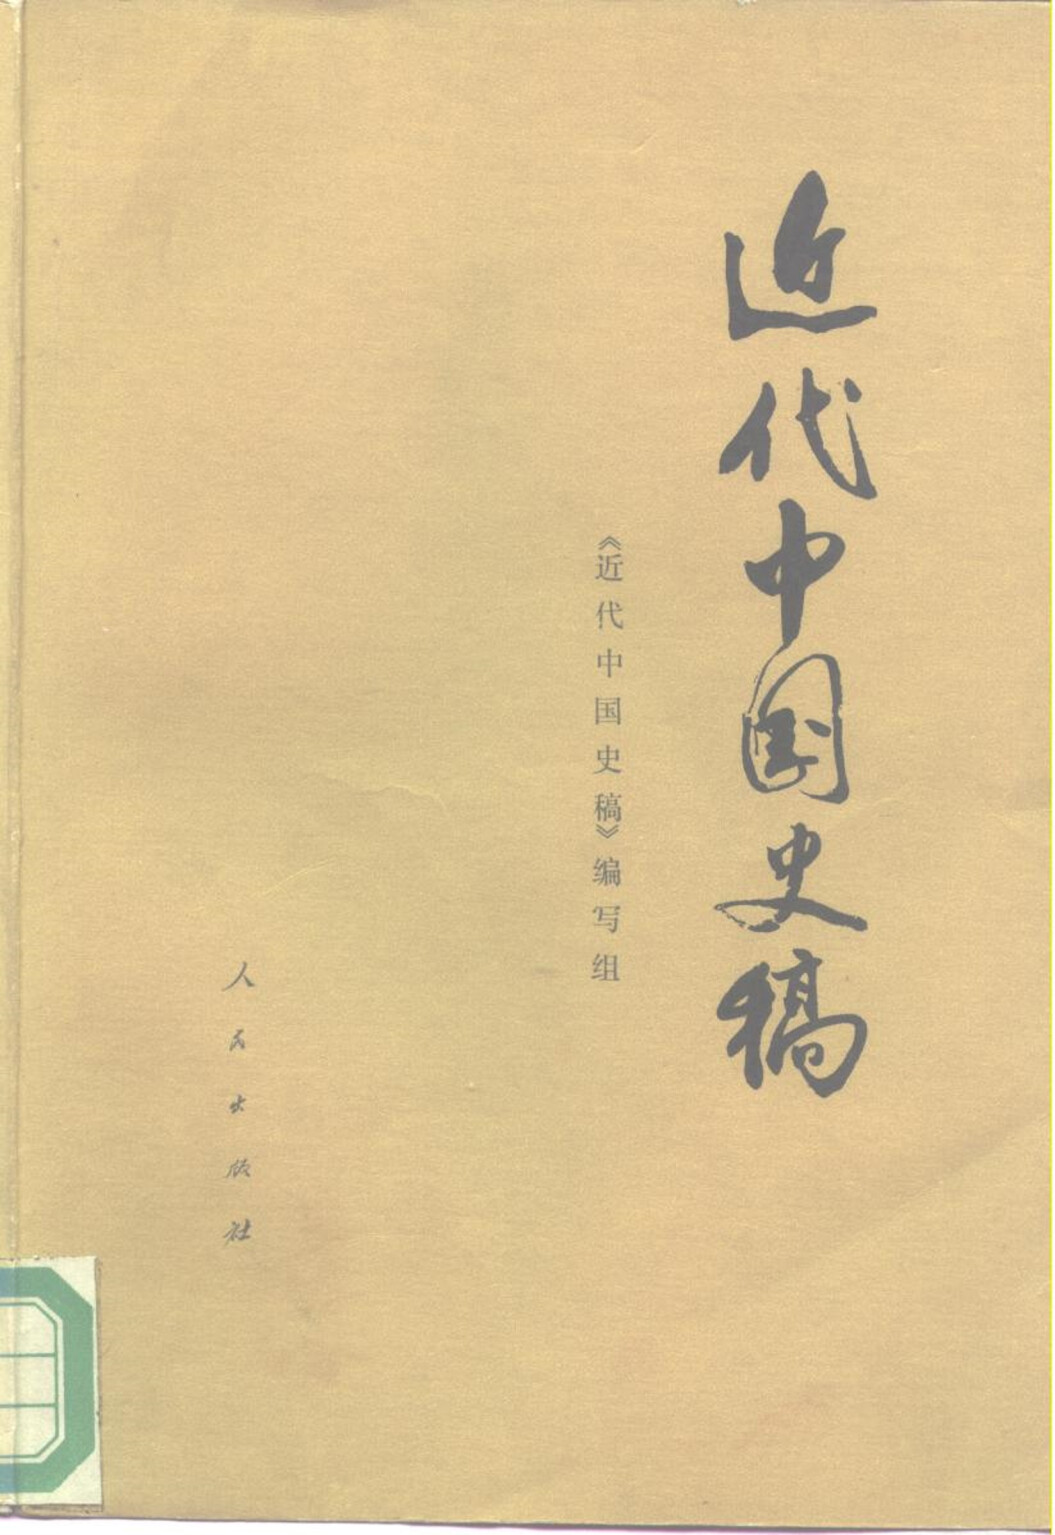 近代中国史稿
《近代中国史稿》编写组
人民出版社